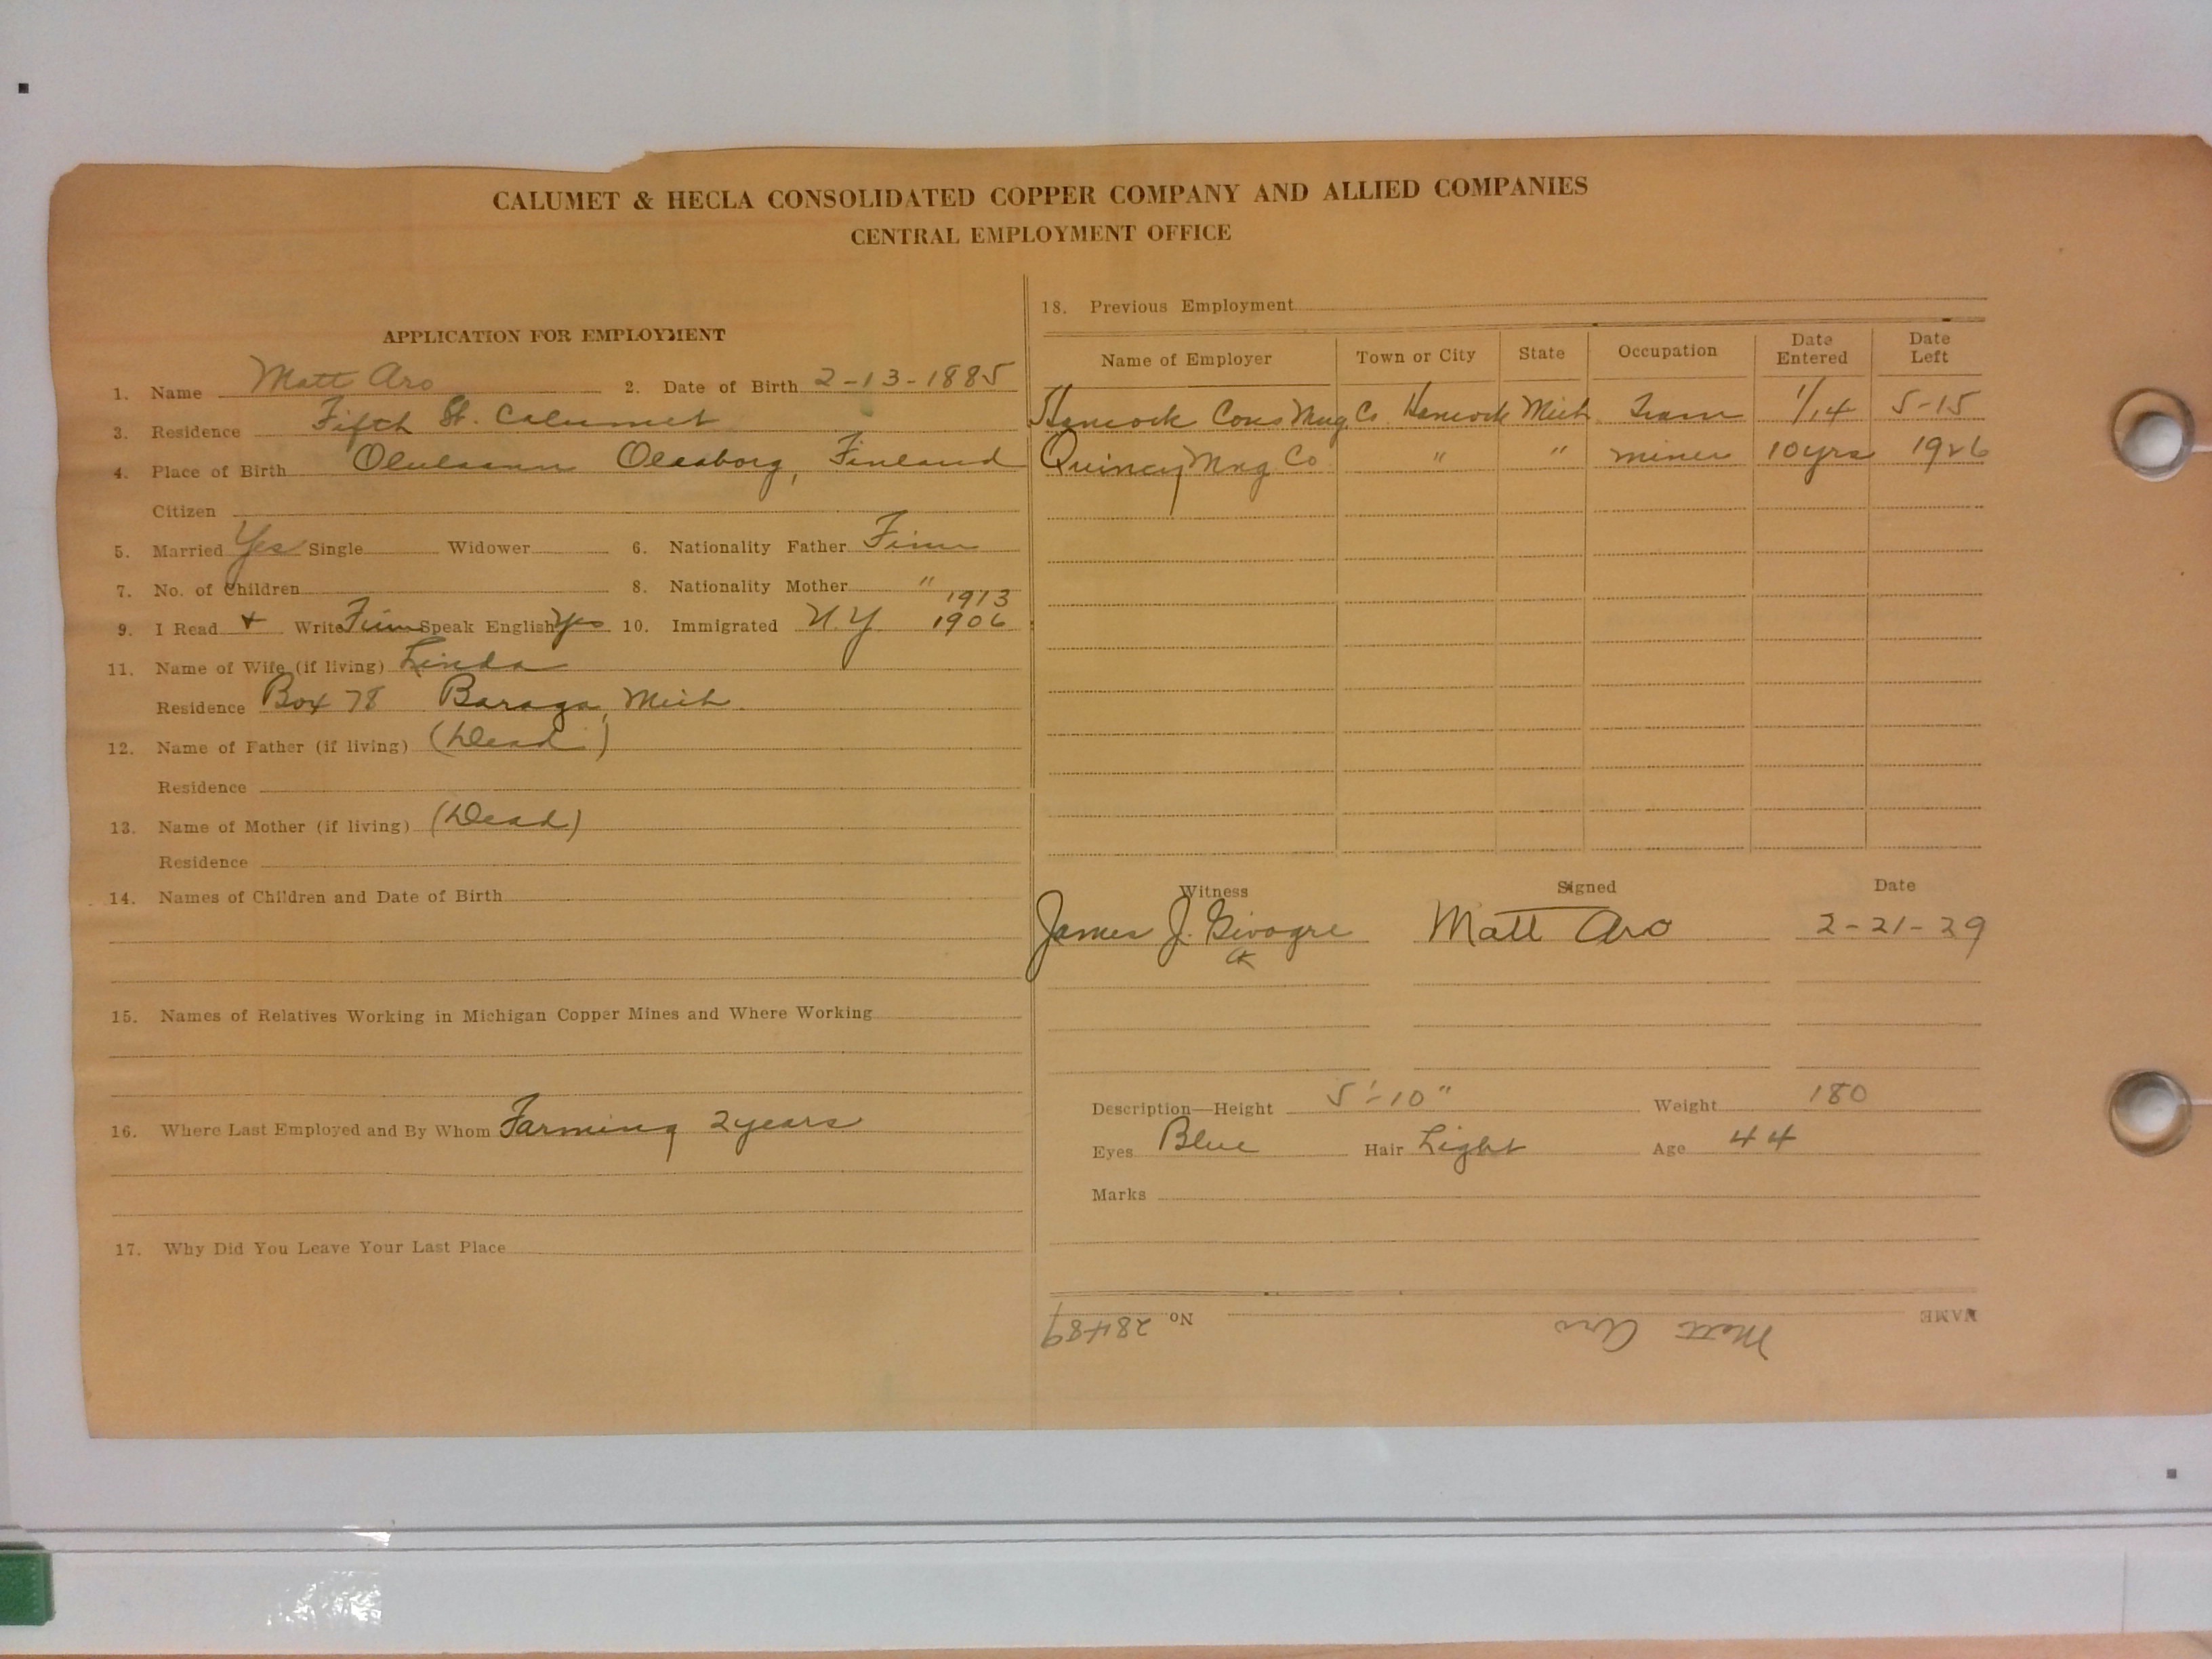 CALUMET & HECLA CONSOLIDATED COPPER COMPANY AND ALLIED COMPANIES
CENTRAL EMPLOYMENT OFFICE
APPLICATION FOR EMPLOYMENT
1. Name Matt Aro 2. Date of Birth 2-13-1885
3. Residence Fifth St. Calumet
4. Place of Birth Finland
Citizen
5. Married Yes Single Widower 6. Nationality Father Finn
7. No. of Children 8. Nationality Mother "
1913
9. I Read + Write Finn Speak English Yes 10. Immigrated N.Y 1906
11. Name of Wife (if living) Linda
Residence Box 78 Baraga, Mich.
12. Name of Father (if living) (Dead)
Residence
13. Name of Mother (if living) (Dead)
Residence
14. Names of Children and Date of Birth
15. Names of Relatives Working in Michigan Copper Mines and Where Working
16. Where Last Employed and By Whom Farming 2 years
17. Why Did You Leave Your Last Place
18. Previous Employment
Name of Employer Town or City State Occupation Date Entered Date Left
Hancock Cons Mng Co. Hancock Mich Tram 1/14 5-15
Quincy Mng Co " " miner 10 yrs 1926
Witness Signed Date
James J. Matt Aro 2-21-29
Description—Height 5'-10" Weight 180
Eyes Blue Hair Light Age 44
Marks
NAME Matt Aro No 28489